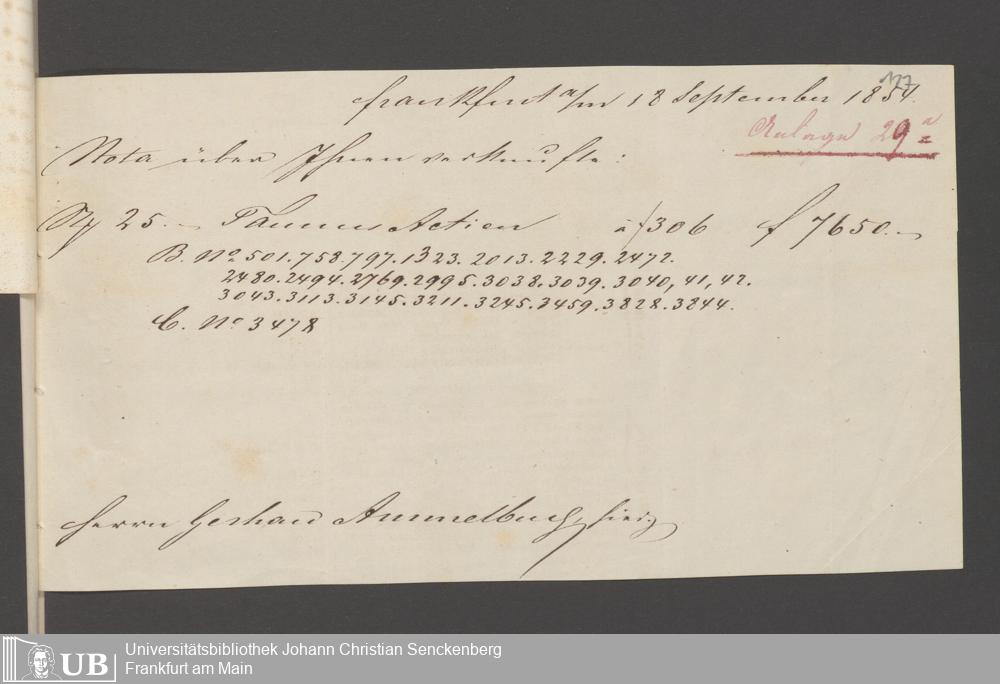 127
Frankfurt a/m 18 September 1854.
Anlage 29 a
Nota über Ihnen verkaufte:
25.– Taunus Actien à f 306 f 7650.–
B. No. 501.758.797.1323.2013.2229.2472.
2480.2494.2769.2995.3038.3039.3040,41,42.
3043.3113.3145.3211.3245.3459.3828.3844.
C. No 3478
Herrn Gerhard Ammelburg, hier
UB
Universitätsbibliothek Johann Christian Senckenberg
Frankfurt am Main